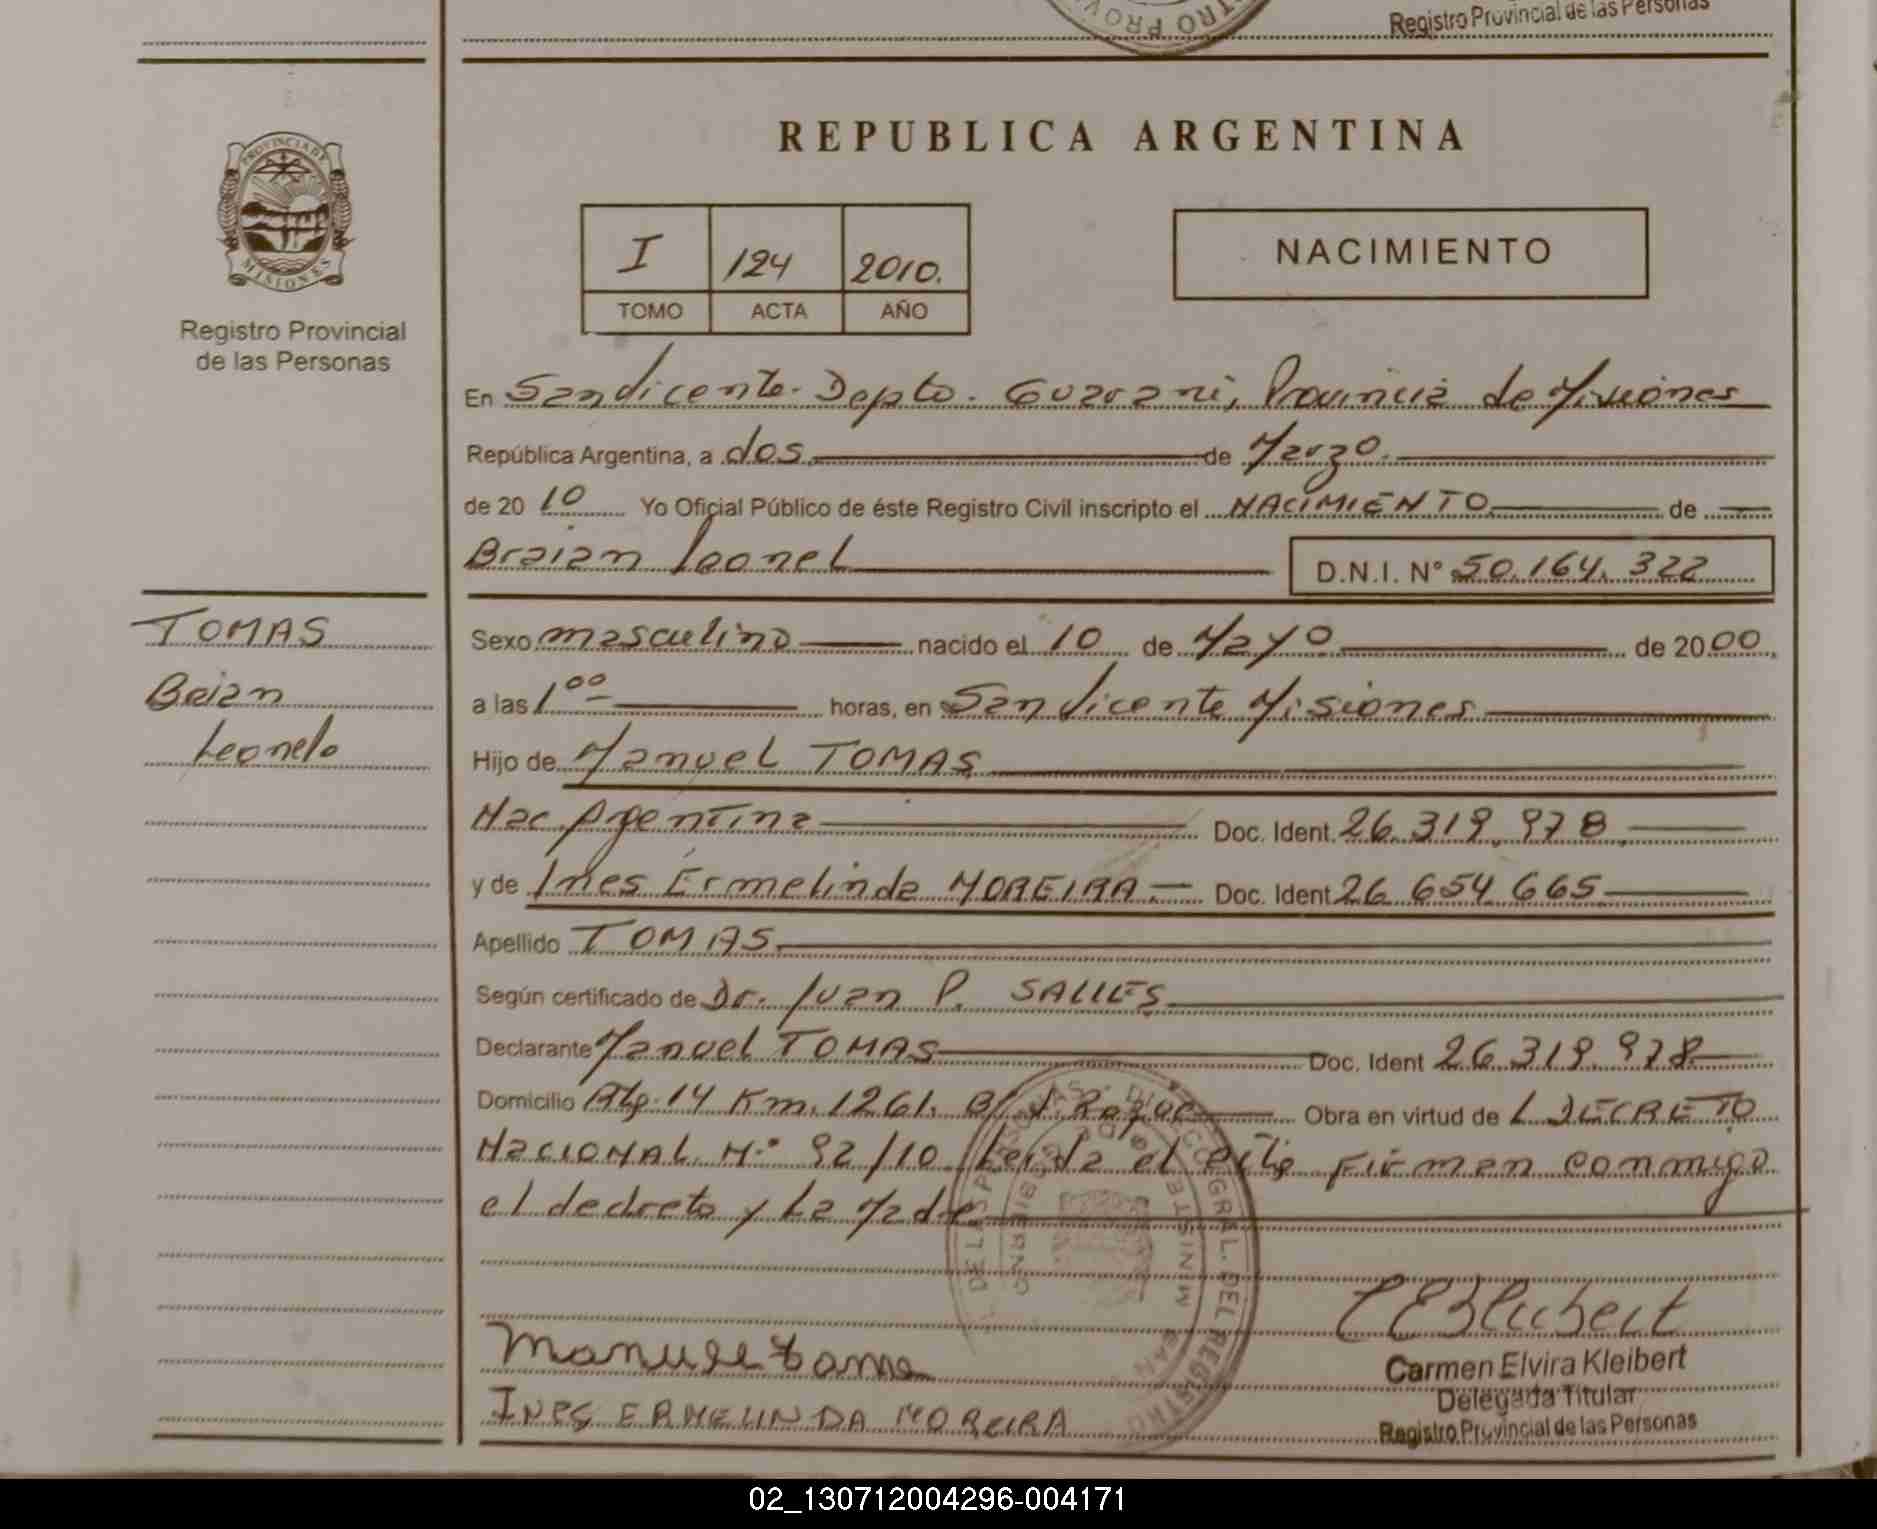 Registro Provincial de las Personas
REPUBLICA ARGENTINA
PROVINCIA DE
MISIONES
Registro Provincial
de las Personas
I 124 2010.
TOMO ACTA AÑO
NACIMIENTO
En San Vicente. Depto. Guarani, Provincia de Misiones
República Argentina, a dos de Marzo.
de 2010 Yo Oficial Público de éste Registro Civil inscripto el NACIMIENTO de
Braian Leonel D.N.I. N° 50.164.322
TOMAS
Braian
Leonelo
Sexo masculino nacido el 10 de Mayo de 2000
a las 1 00 horas, en San Vicente Misiones
Hijo de Manuel TOMAS
Nac Argentina Doc. Ident. 26.319.978
y de Ines Ermelinda MOREIRA Doc. Ident 26 654 665
Apellido TOMAS
Según certificado de Dr. Juan P. SALLES
Declarante Manuel TOMAS Doc. Ident 26.319.978
Domicilio Rta. 14 Km. 1261. B/ S. Roque Obra en virtud de L DECRETO
NACIONAL N° 92/10 Leida el acta Firman conmigo
el dedreto y La Madre
Manuel
INES ERMELINDA MOREIRA
Carmen Elvira Kleibert
Delegada Titular
Registro Provincial de las Personas
02_130712004296-004171